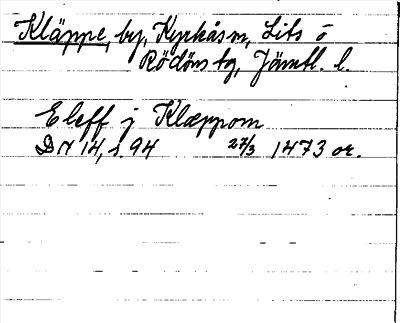 Kläppe, by, Kyrkås sn, Lits o
Rödöns tg, Jämtl. l.
Eleff j Klæppom
DN 14, s. 94 27/3 1473 or.